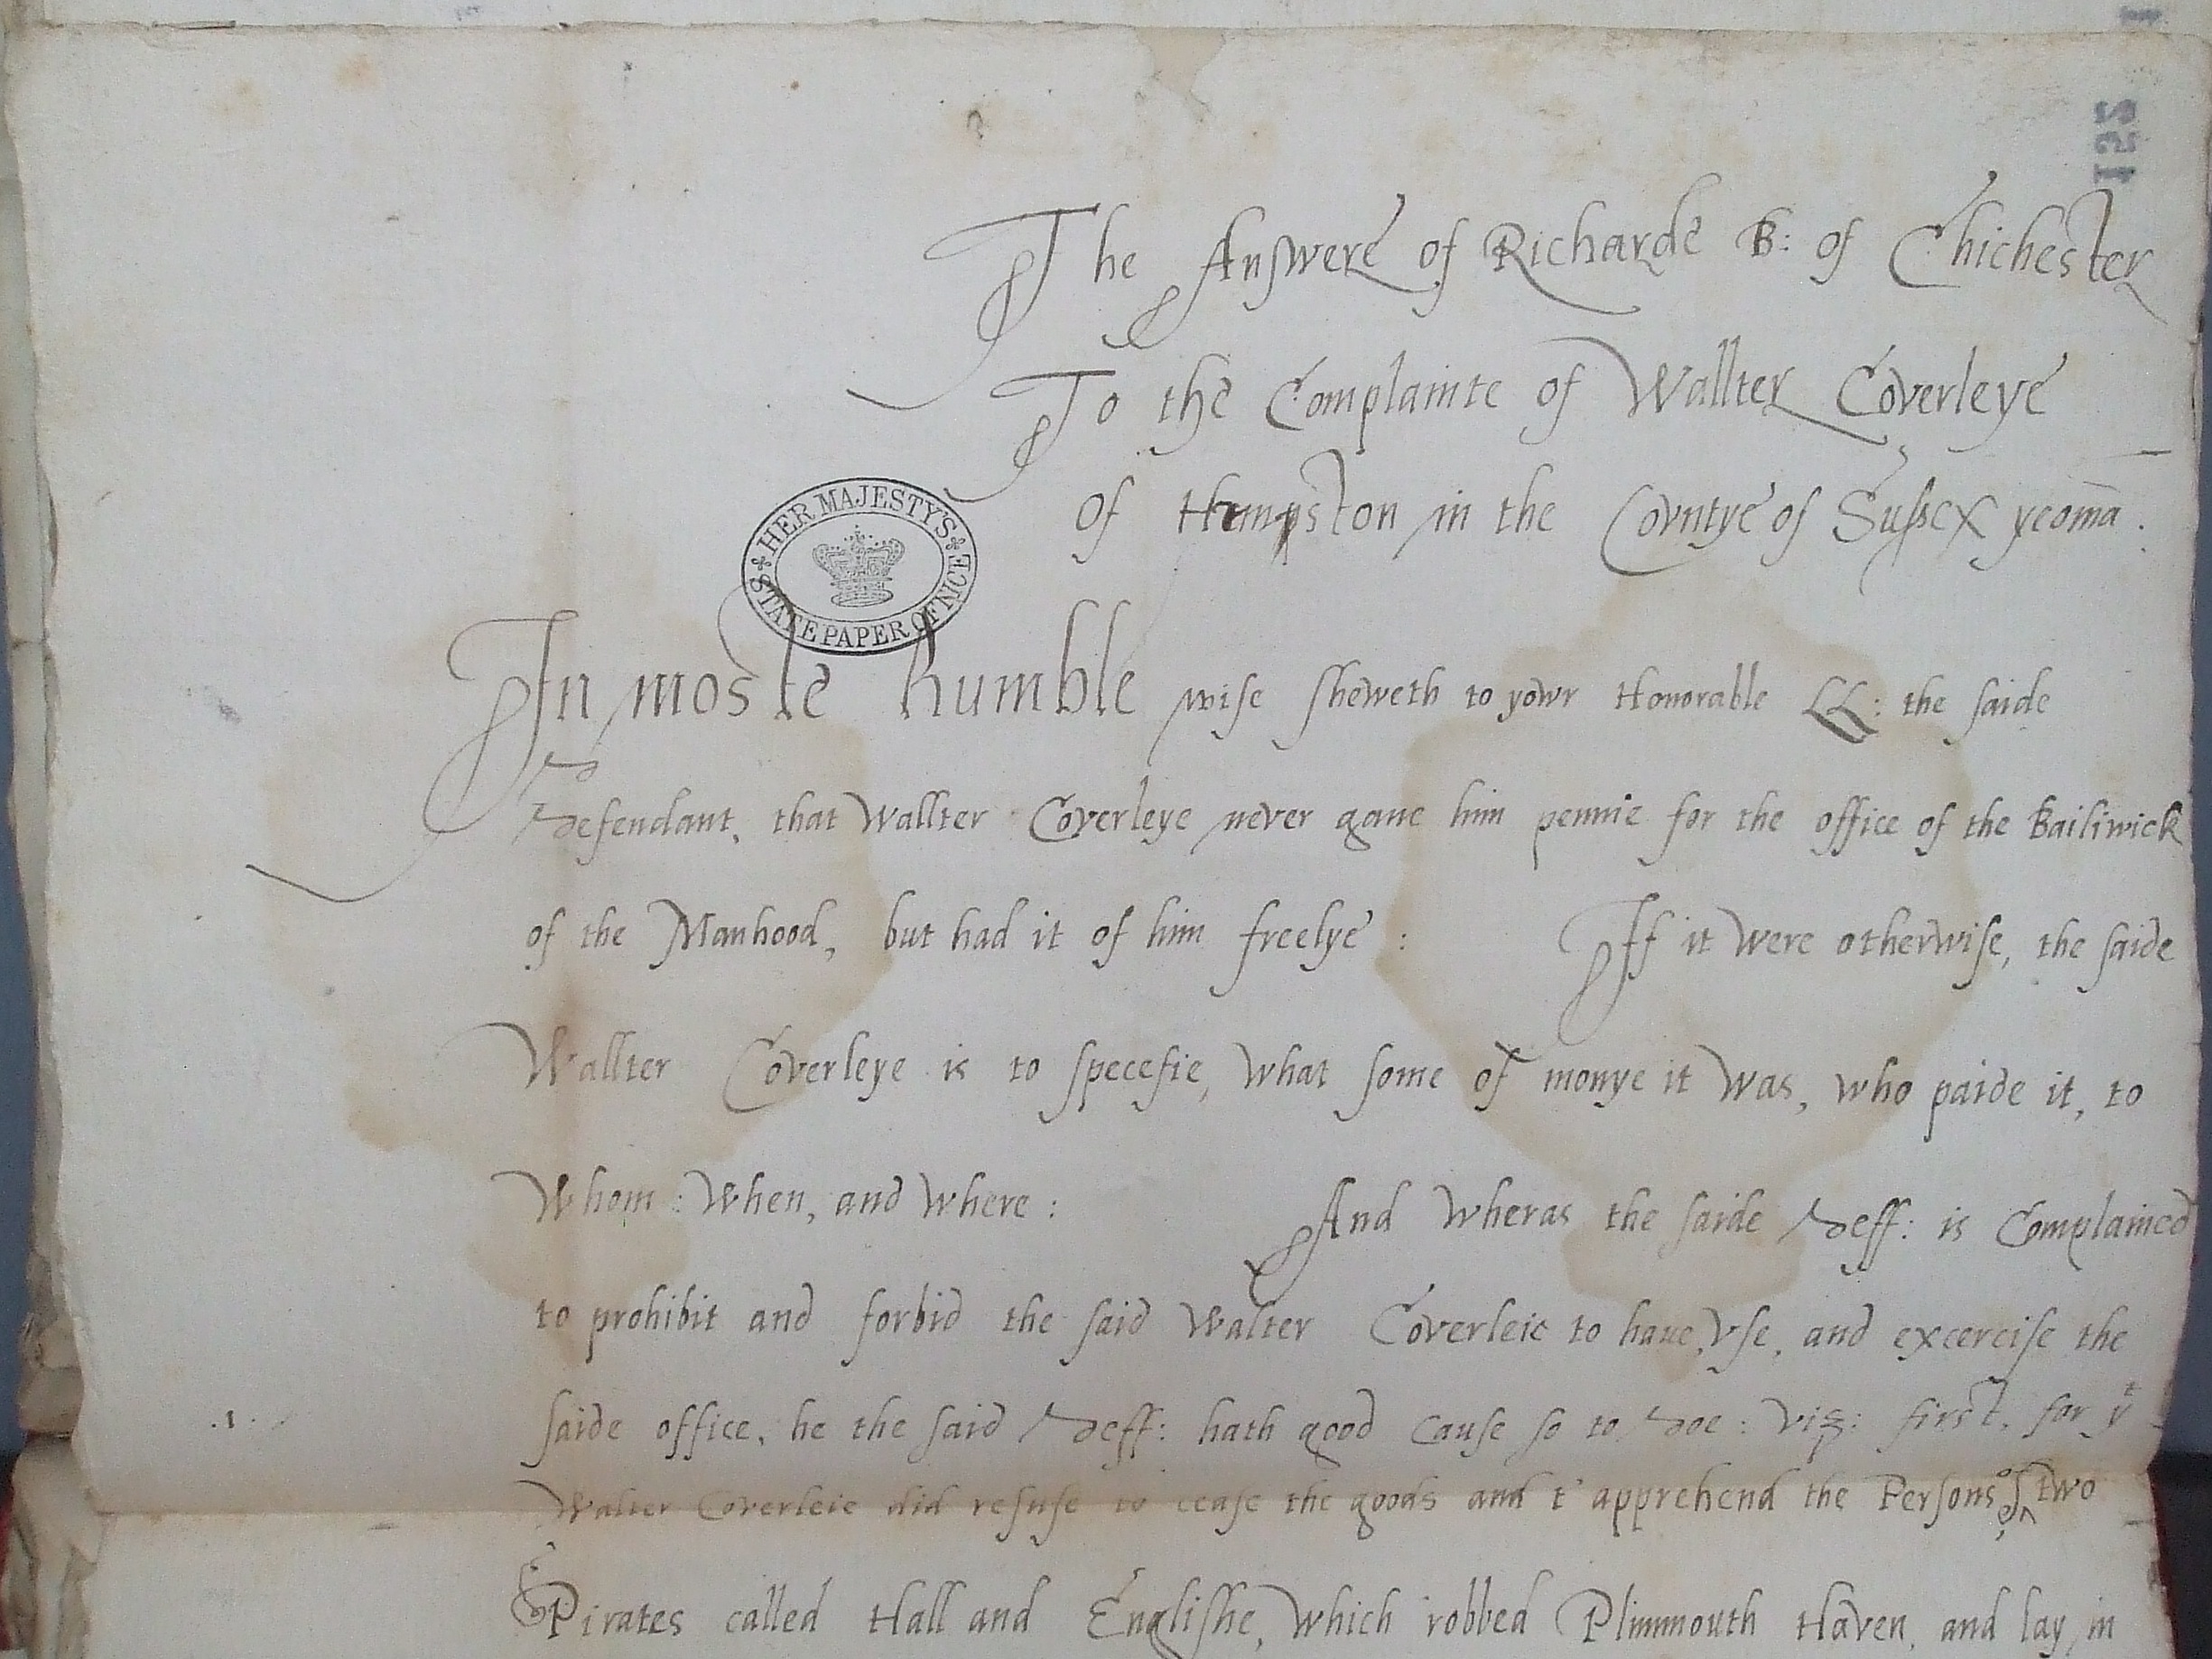 The Answere of Richarde B: of Chichester
To the Complainte of Wallter Coverleye
of Hempston in the Covntye of Sussex yeomā.
HER MAJESTY'S STATE PAPER OFFICE
In moste humble wise sheweth to yowr Honorable LL: the saide
Defendant, that Wallter Coverleye never gaue him pennie for the office of the Bailiwick
of the Manhood, but had it of him freelye: If it were otherwise, the saide
Wallter Coverleye is to specefie, what some of monye it was, who paide it, to
whom: when, and where: And wheras the saide Deff: is Complained
to prohibit and forbid the said Walter Coverleie to haue, vse, and excercise the
.1. saide office, he the said Deff: hath good cause so to doe: viz: first, for yt
Walter Coverleie did refuse to cease the goods and t'apprehend the Persons of two
Pirates called Hall and Englishe, which robbed Plimmouth Haven, and lay in